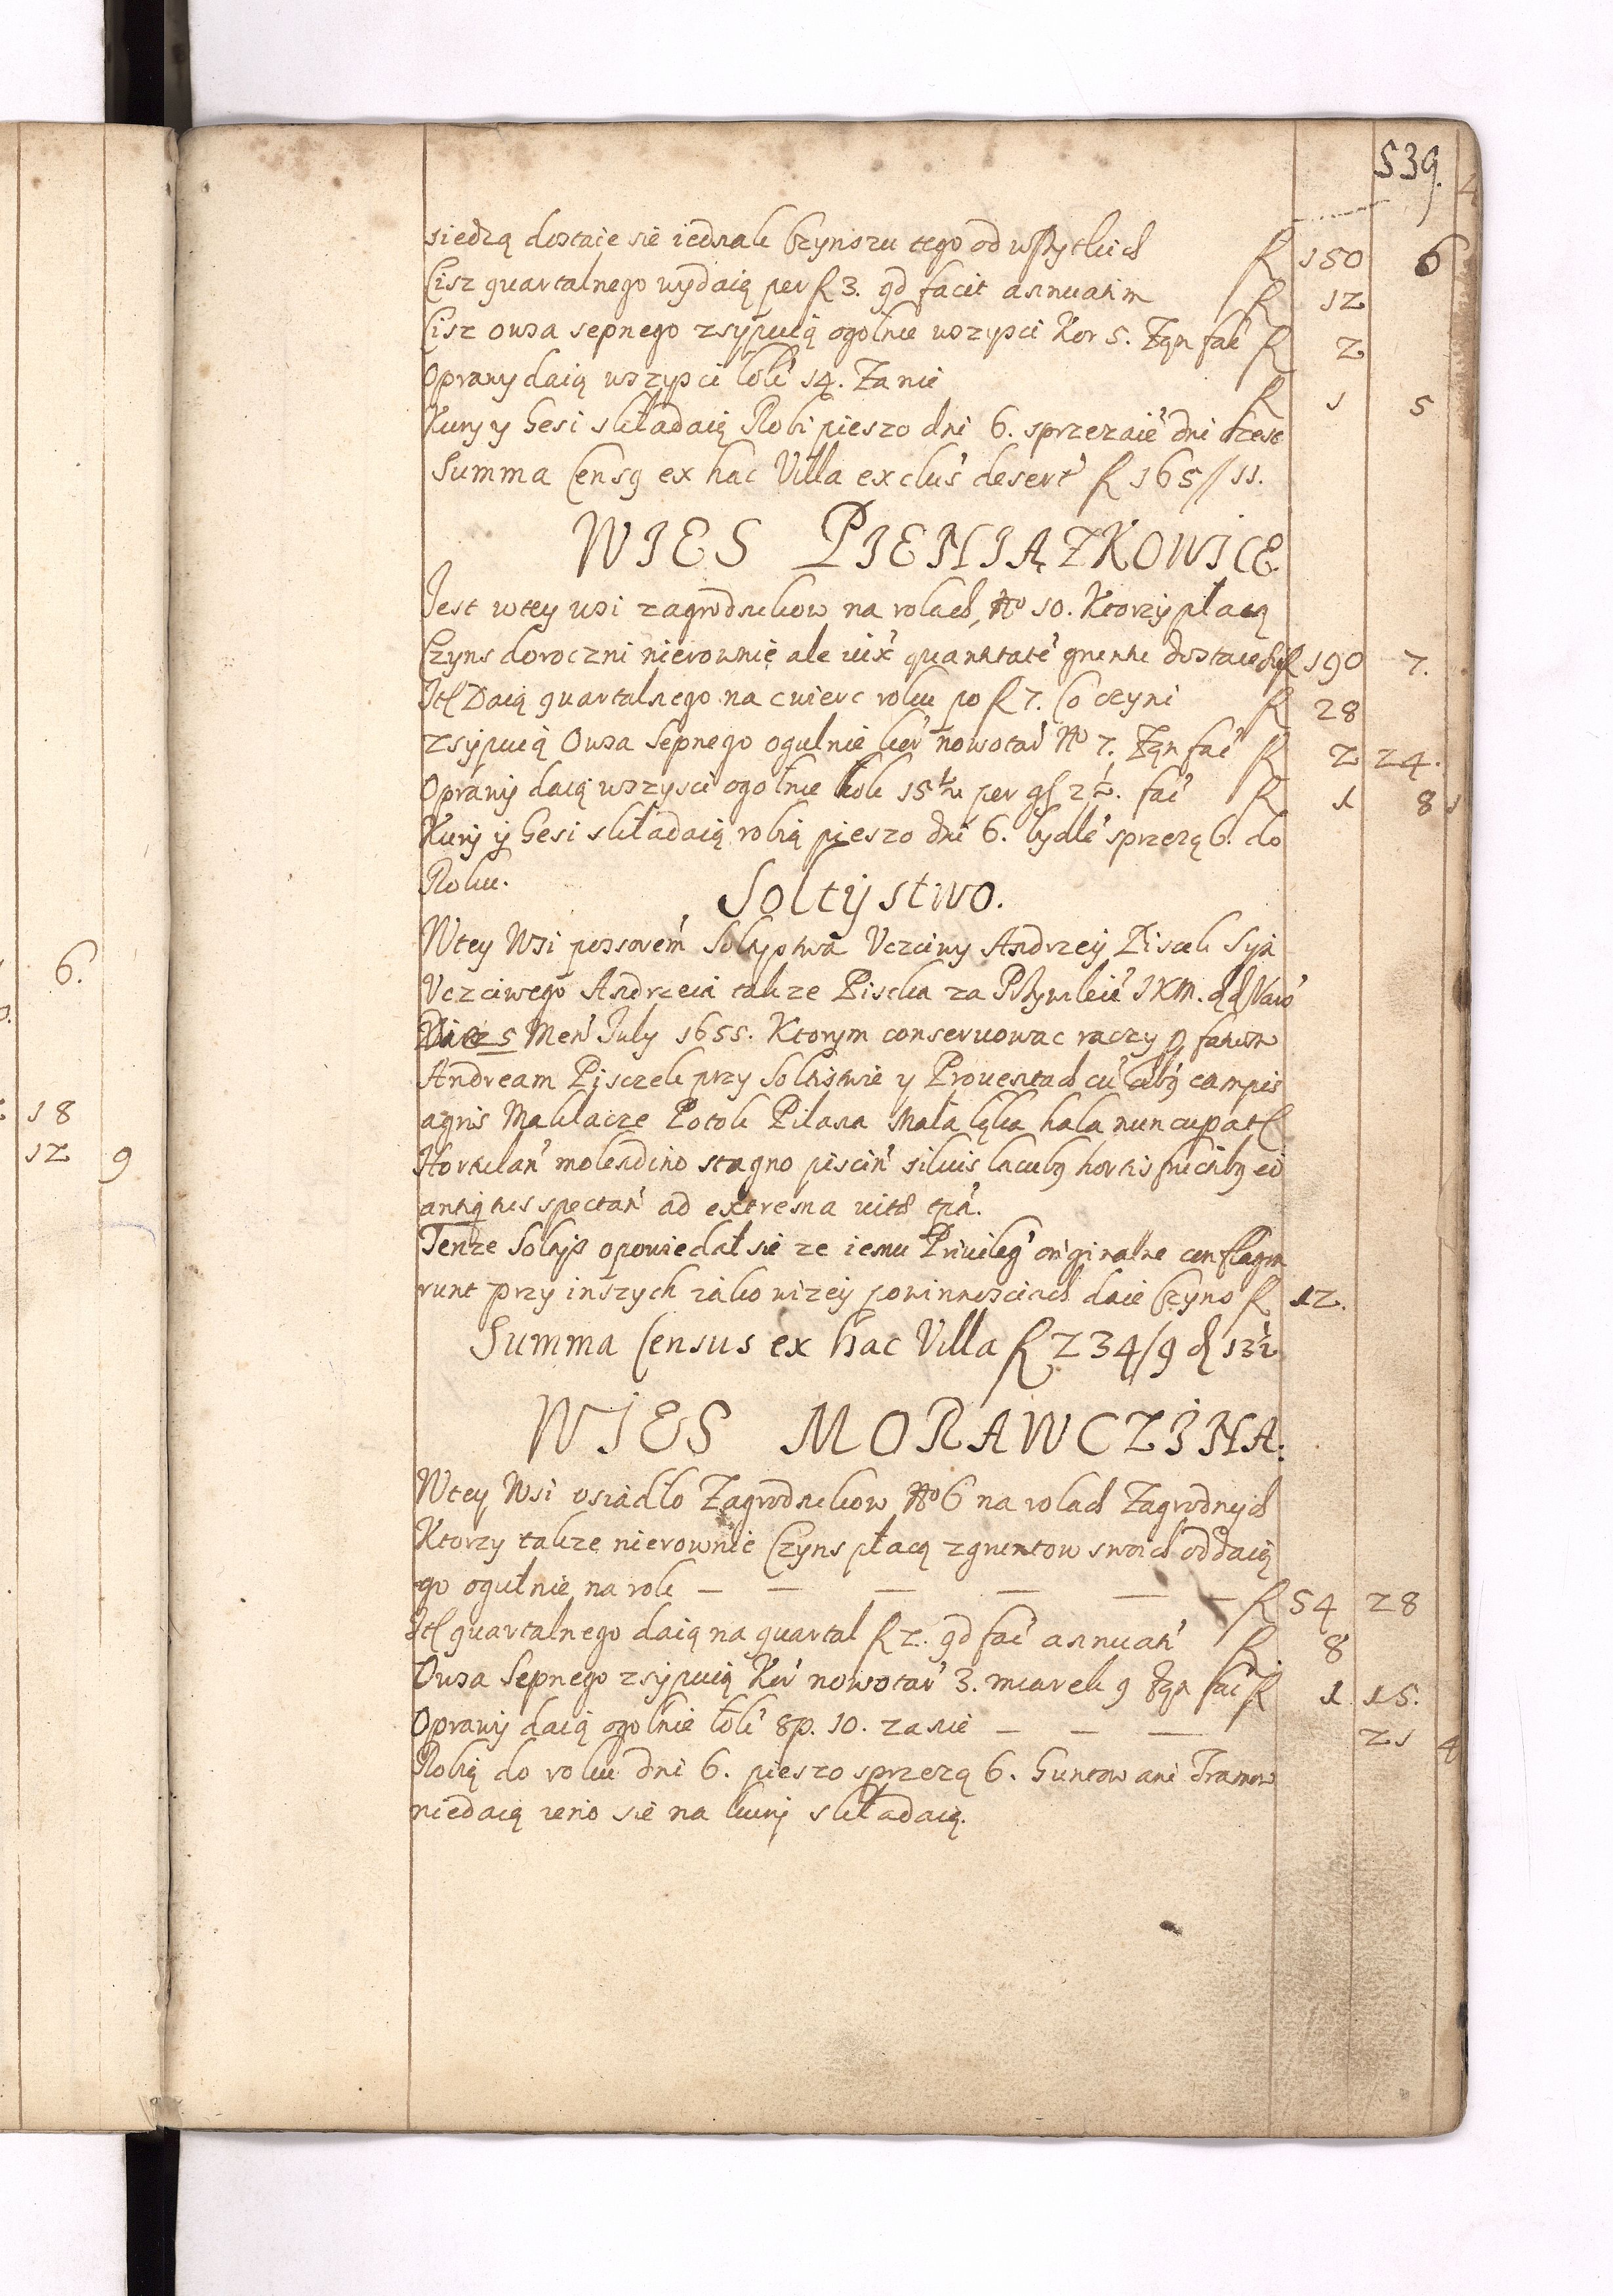 539.
siedzą dostaie się iednak Czynszu tego od wszytkich f 150 6
Cisz quartalnego wydaią per f 3. qd facit annuatim f 12
Cisz owsa sepnego zsypuią ogolnie wszysci Kor 5. Tąn fac f 2
Oprawy daią wszysci łok 14. Za nie f 1 5
Kury y Gesi składaią Robi pieszo dni 6. sprzezaie dni szesc
Summa Censq ex hac Villa exclus desert f 165//11.
WIES PIENIĄZKOWICE
Jest wtey wsi zagrodnikow na rolach No 10. Ktorzy płacą
Czyns doroczni nierownie ale iux quantitate gruntu dostaie się f 190 7.
Itl Daią quartalnego na cwierc roku po f 7. Co czyni f 28
zsypuią Owsa Sepnego ogulnie kor nowotar No 7. Tąn fac f 2 24.
Oprawy daią wszysci ogolnie łok 15 1/2 per gl 2 1/2. fac f 1 8
Kury y Gesi składaią robią pieszo dni 6. bydłe sprzezą 6. do
Roku.
Soltystwo.
Wtey Wsi possorem Soltystwa Uczciwy Andrzey Piscek Syn
Uczciwego Andrzeia takze Piscka za Przywileie JKM. dd Varo
5 Men July 1655. Ktorym conservowac raczy
Andream Pisczek przy Soltistwie y Proventach cu oibq campis
agris Maklacze Potok Pilana Mała Łąka hala nuncupatl
Hortulan molendino stagno piscin silvis lacubq hortis
antiquitus spectan ad extrema vitae tpa.
Tenze Soltys opowiedał sie ze iemu Privileg originalne conflagra
runt przy inszych iako wizey powinnosciach daie Czyns f 12.
Summa Census ex hac Villa f 234/9 d 13 1/2
WIES MORAWCZINA.
Wtey Wsi osiadło Zagrodnikow No 6 na rolach Zagrodnych
Ktorzy takze nierownie Czyns płacą zgruntow swoich oddaią
go ogulnie na rok — — — — — f 54 28
Itl quartalnego daią na quartal f 2. qd fac annuati f 8
Owsa Sepnego zsypuią Kor nowotar 3. miarek 9 Tąn fac f 1 15.
Oprawy daią ogolnie łok 8 p. 10. za nie — — — 21 4
Robią do roku dni 6. pieszo sprzezą 6. Guntow ani Tramow
niedaią ieno sie na kury składaią.
6.
18
12 9